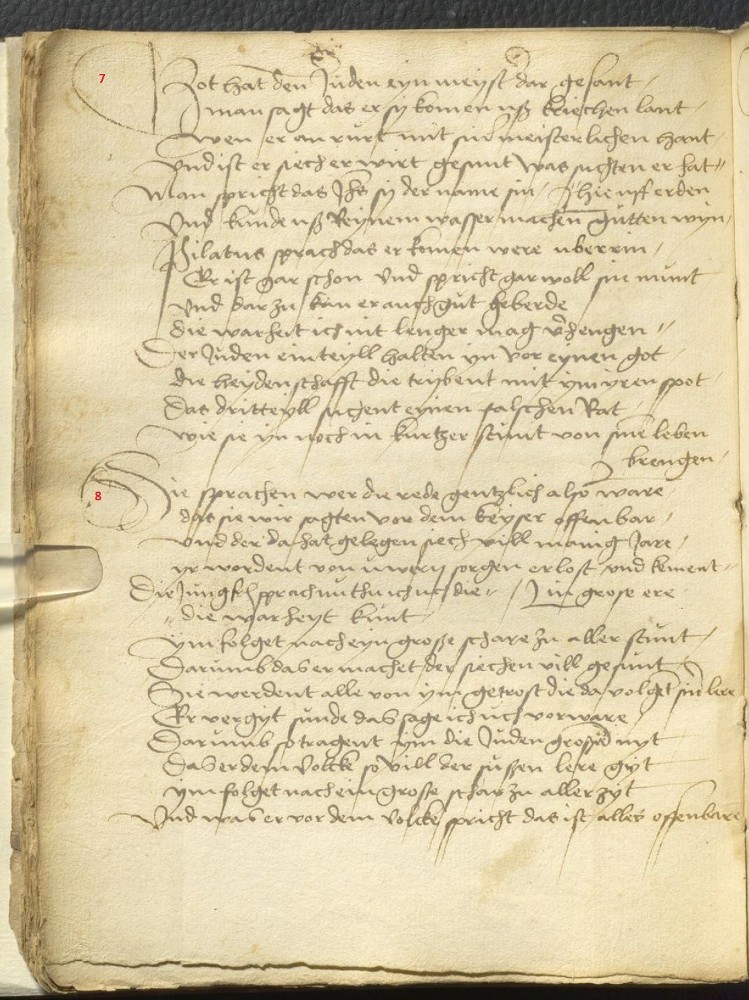 7
Got hat den Juden eyn meyster dar gesant
man sagt das er sy komen uß kriechen lant
wen er an rurt mit sin meisterlichen hant
und ist er siech er wirt gesunt was suchten er hat
Man spricht das Jhs sy der name sin / hie uff erden
Und kunde uß Reynem wasser machen gutten wyn
Pilatus sprach das er komen were uber rin
Er ist gar schon und spricht gar woll sin munt
und dar zu kan er auch gut geberde
die warheit ich nit lenger mag verhengen
Der Juden ein teyll halten yn vor eynen got
die heydenschafft die trybent mit ym yren spot
Das dritteyll suchent eynen falschen Rat
wie sie yn noch in kurtzer stunt von sim leben
brengen
8
Sie sprachen wer die rede gentzlich also ware
das sie wir sagten vor dem keyser offenbar
und der da hat gelegen siech vill manig Jare
yr wordent von uwern sorgen erlost und kement
Die Jungfr sprach nu thun ich uch die / in grose ere
die warheyt kunt
ym folget nach eyn große schare zu aller stunt
Darumb das er machet der siechen vill gesunt
Sie werdent alle von ym getrost die da volget sin lere
Er vergyt sunde das sage ich uch vorware
Darumb so tragent ym die Juden großen nyt
Das er dem volcke so vill der sußen lere gyt
ym folget nach ein große schar zu aller zyt
Und was er vor dem volcke spricht das ist alles offenbare